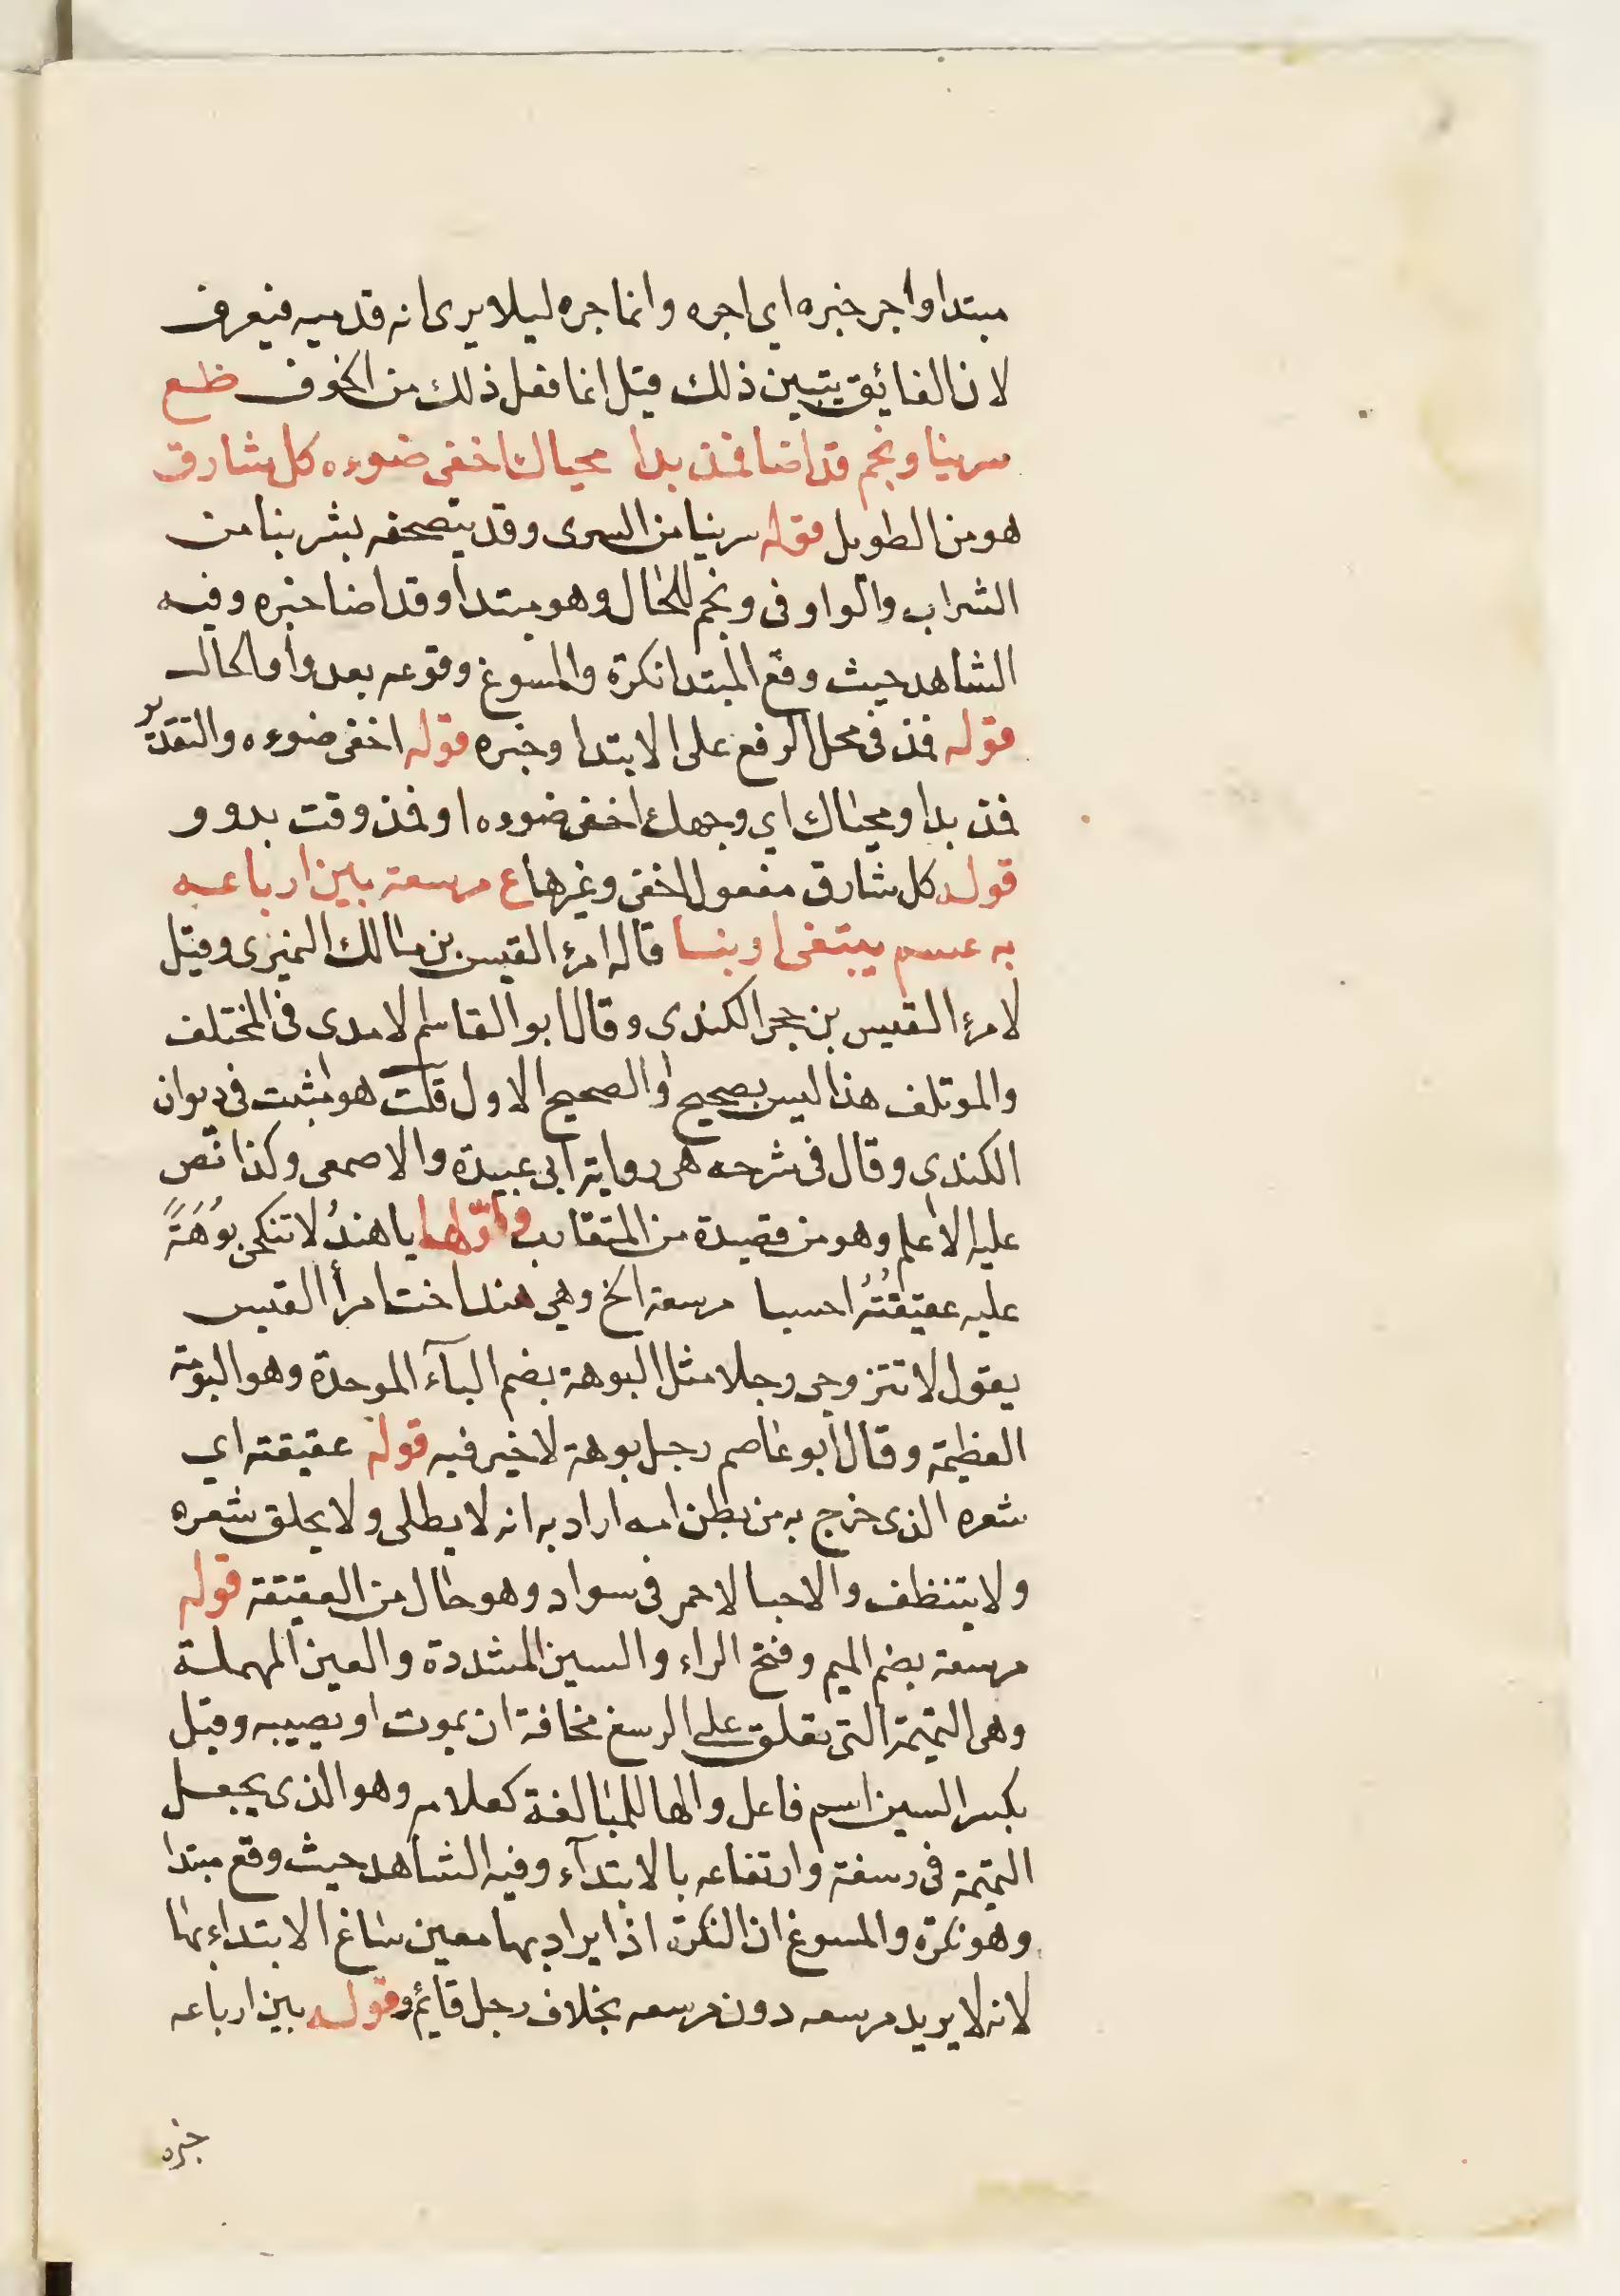 مبتدا واجر خبره اي اجره وانما جره ليلا يرى انه قدميه فيعرف
لان القائق يتبين ذلك قيل انما فعل ذلك من الخوف ظع
سرينا ونجم قد اضا فمذ بدا محياك اخفى ضوءه كل شارق
هو من الطويل قوله سرينا من السرى وقد يتصحفه بشربنا من
الشراب والواو فى ونجم للحال وهو مبتدا وقد اضا خبره وفيه
الشاهد حيث وقع المبتدا نكرة والمسوغ وقوعه بعد واو الحال
قوله فمذ فى محل الرفع على الابتدا وخبره قوله اخفى ضوءه والتقدير
فمذ بدا ومحياك اي وجهك اخفى ضوءه او فمذ وقت بدو و
قوله كل شارق مفعول اخفى وغيرها ع مرسعة بين ارباعه
به عسم يبتغى اربنسا قاله امرء القيس بن مالك النميرى وقيل
لامرء القيس بن حجر الكندى وقال ابو القاسم لامدى فى المختلف
والموتلف هذا ليس بصحيح والصحيح الاول قلت هو مثبت فى ديوان
الكندى وقال فى شرحه هى رواية ابى عبيدة والاصمعى وكذا نص
عليه الاعلم وهو من قصيدة من المتقارب واولها يا هندُ لا تنكحى بُوُهَةً
عليه عقيقتُهُ احسبا مرسعة الخ وهي هند اخت امرأ القيس
يقول لا تتزوجى رجلا مثل البوهة بضم البآء الموحدة وهو البومة
العظيمة وقال ابو عاصم رجل بوهة لا خير فيه قوله عقيقته اي
شعره الذى خرج به من بطن امه اراد به انه لا يطلى ولا يحلق شعره
ولا يتنظف والاحبا لاحمر فى سواد وهو حال من العقيقة قوله
مرسعة بضم الميم وفتح الراء والسين المشددة والعين المهملة
وهى التميمة التى تعلق على الرسغ مخافة ان يموت او يصيبه وقيل
بكسر السين اسم فاعل والها للمبالغة كعلامه وهو الذى يجعل
التميمة فى رسغة وارتفاعه بالابتدآء وفيه الشاهد حيث وقع مبتدا
وهو نكرة والمسوغ ان النكرة اذا يراد بها معين ساغ الابتداء بها
لانه لا يريد مرسعه دون مرسعه بخلاف رجل قائم وقوله بين ارباعه
خبره